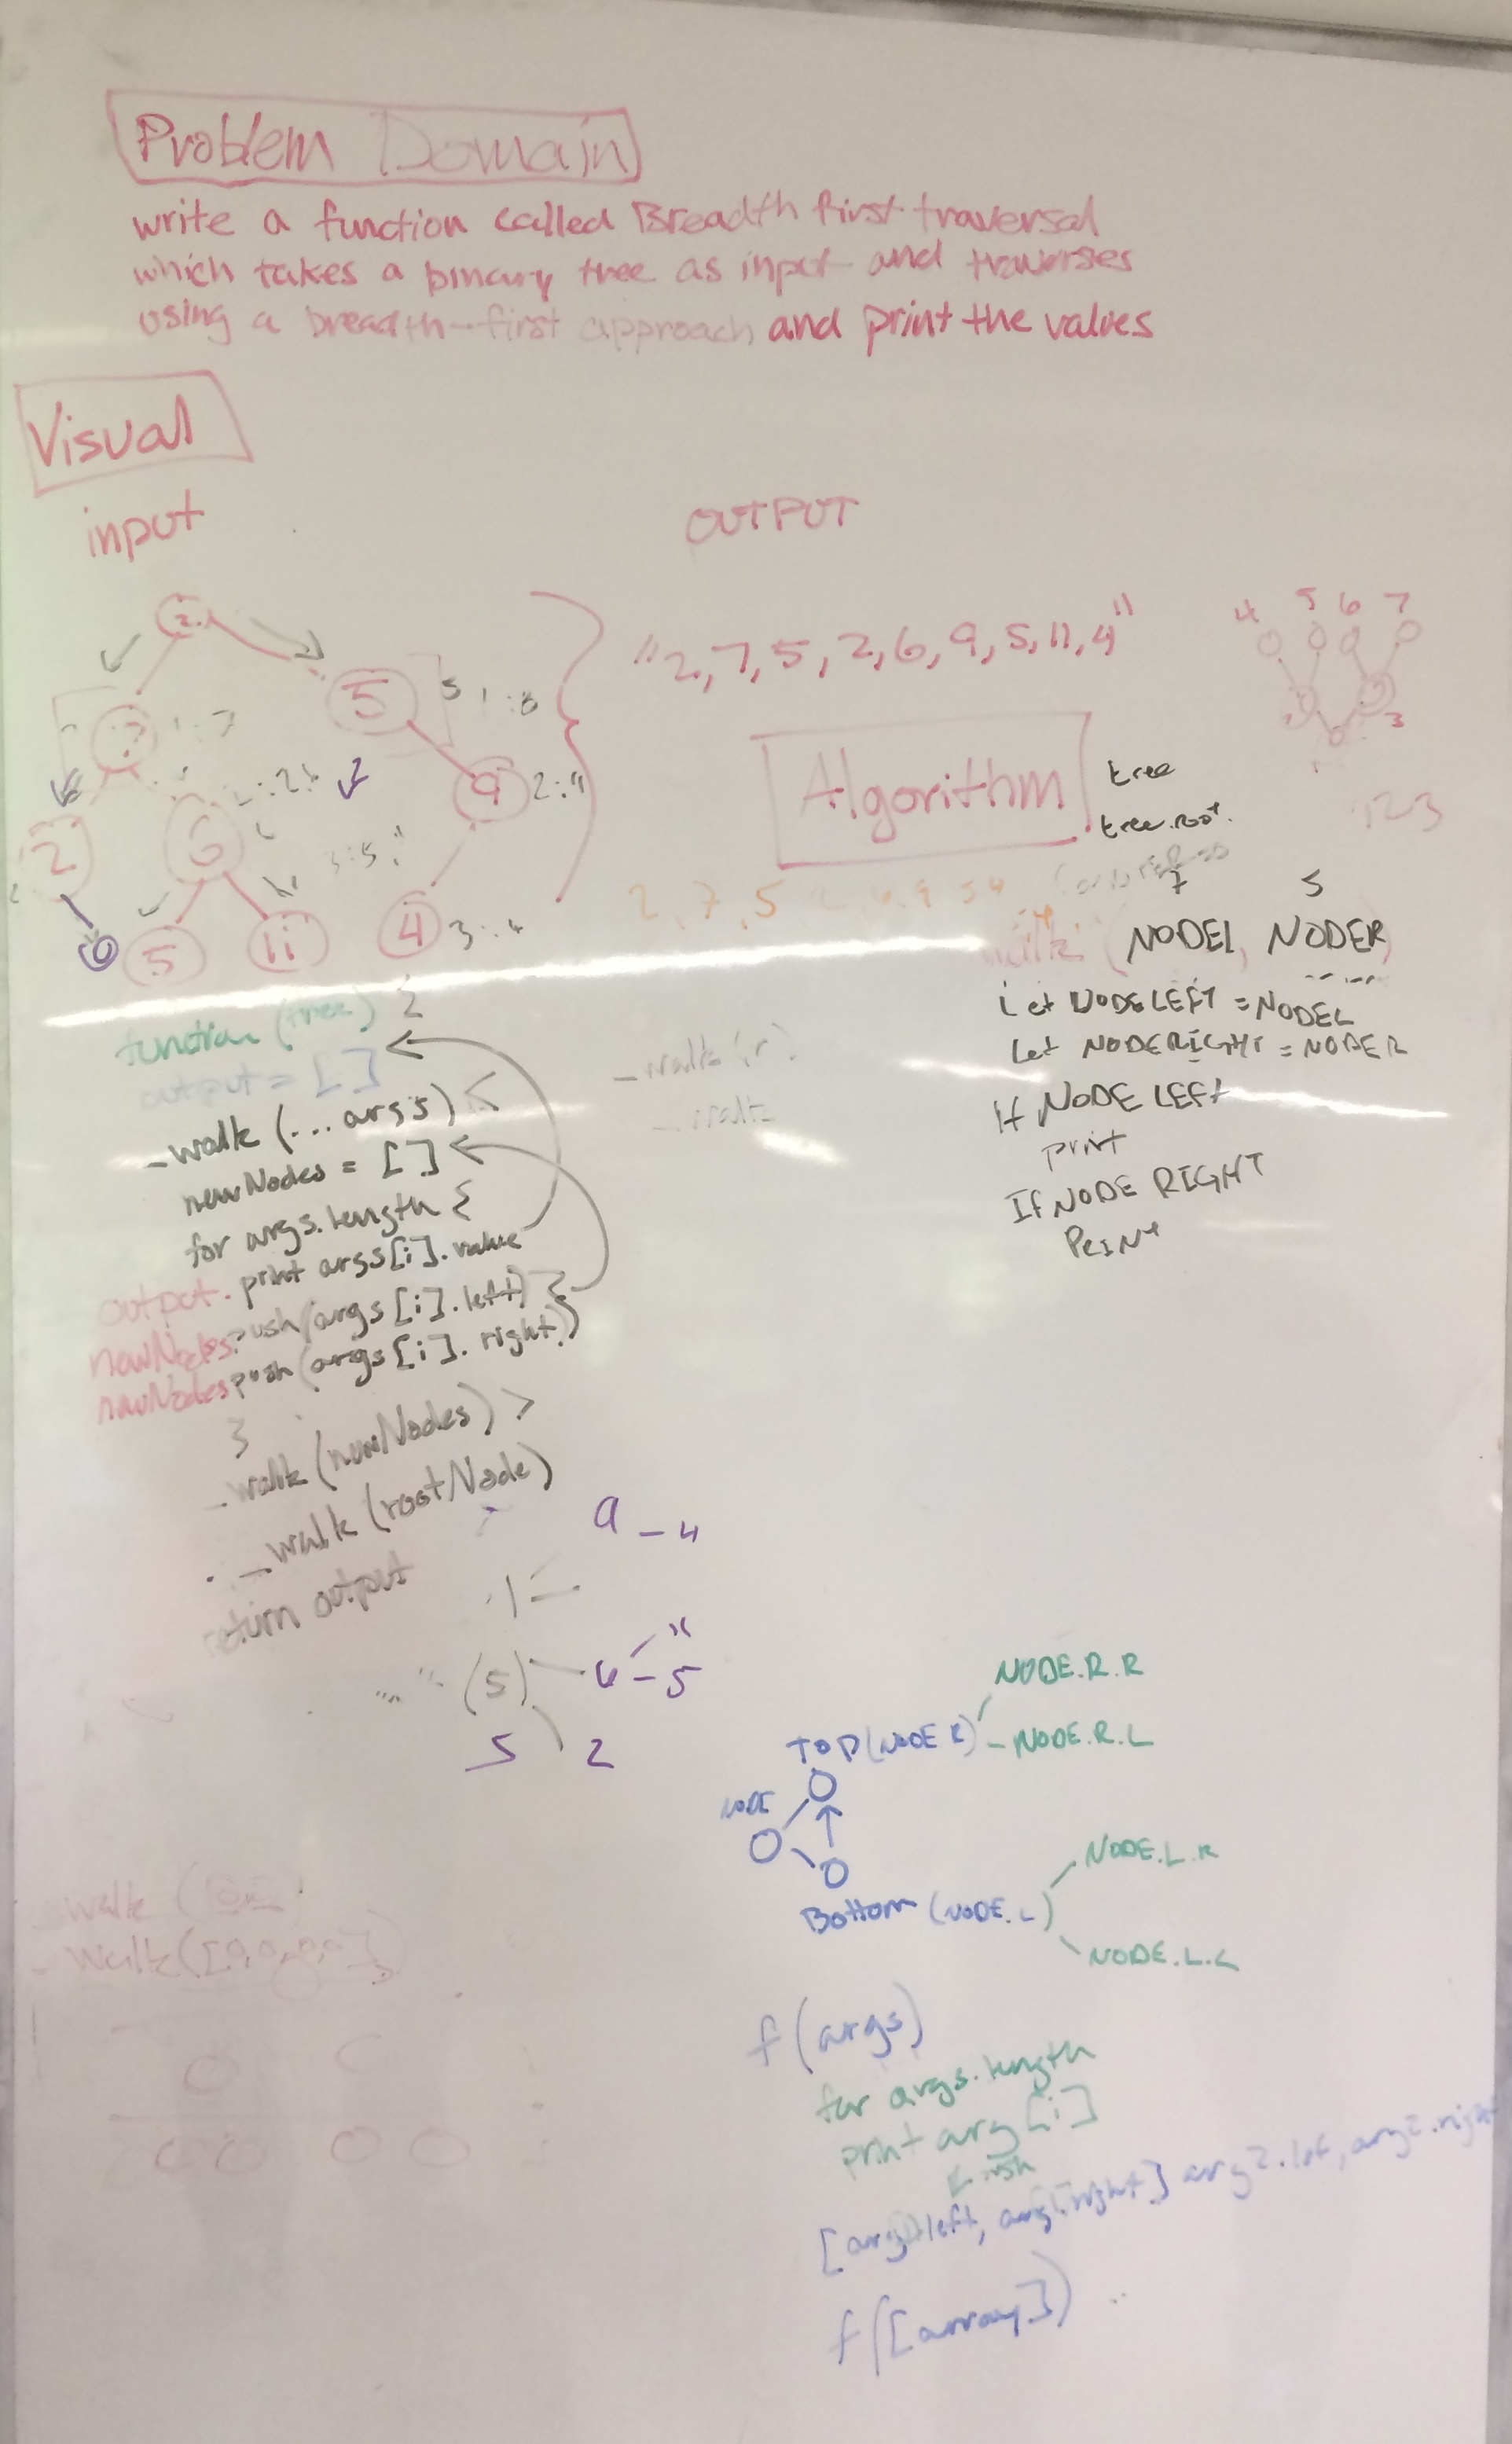 Problem Domain
write a function called Breadth first traversal
which takes a binary tree as input and traverses
using a breadth-first approach and print the values
Visual
input
OUTPUT
2
7
5
2
6
9
5
11
4
"2,7,5,2,6,9,5,11,4"
4 5 6 7
3
123
Algorithm
tree
tree.root
2,7,5
7 5
(NODEL, NODER)
let NODELEFT = NODEL
let NODERIGHT = NODER
If NODE LEFT
print
If NODE RIGHT
PRINT
function (tree) {
output = []
_walk (...args) {
newNodes = []
for args.length {
output. print args[i].value
newNodes.push(args[i].left)
newNodes push(args[i].right)
}
_walk (newNodes) >
_walk (rootNode)
return output
_walk (r)
_walk
9 - 4
(5) 6 - 5
11
5 2
NODE.R.R
TOP (NODE R) - NODE.R.L
NODE
NODE.L.R
Bottom (NODE.L)
NODE.L.L
_walk
_walk([
f(args)
for args.length
print arg[i]
push
[arg1.left, arg1.right] arg2.left, arg2.right
f([array])